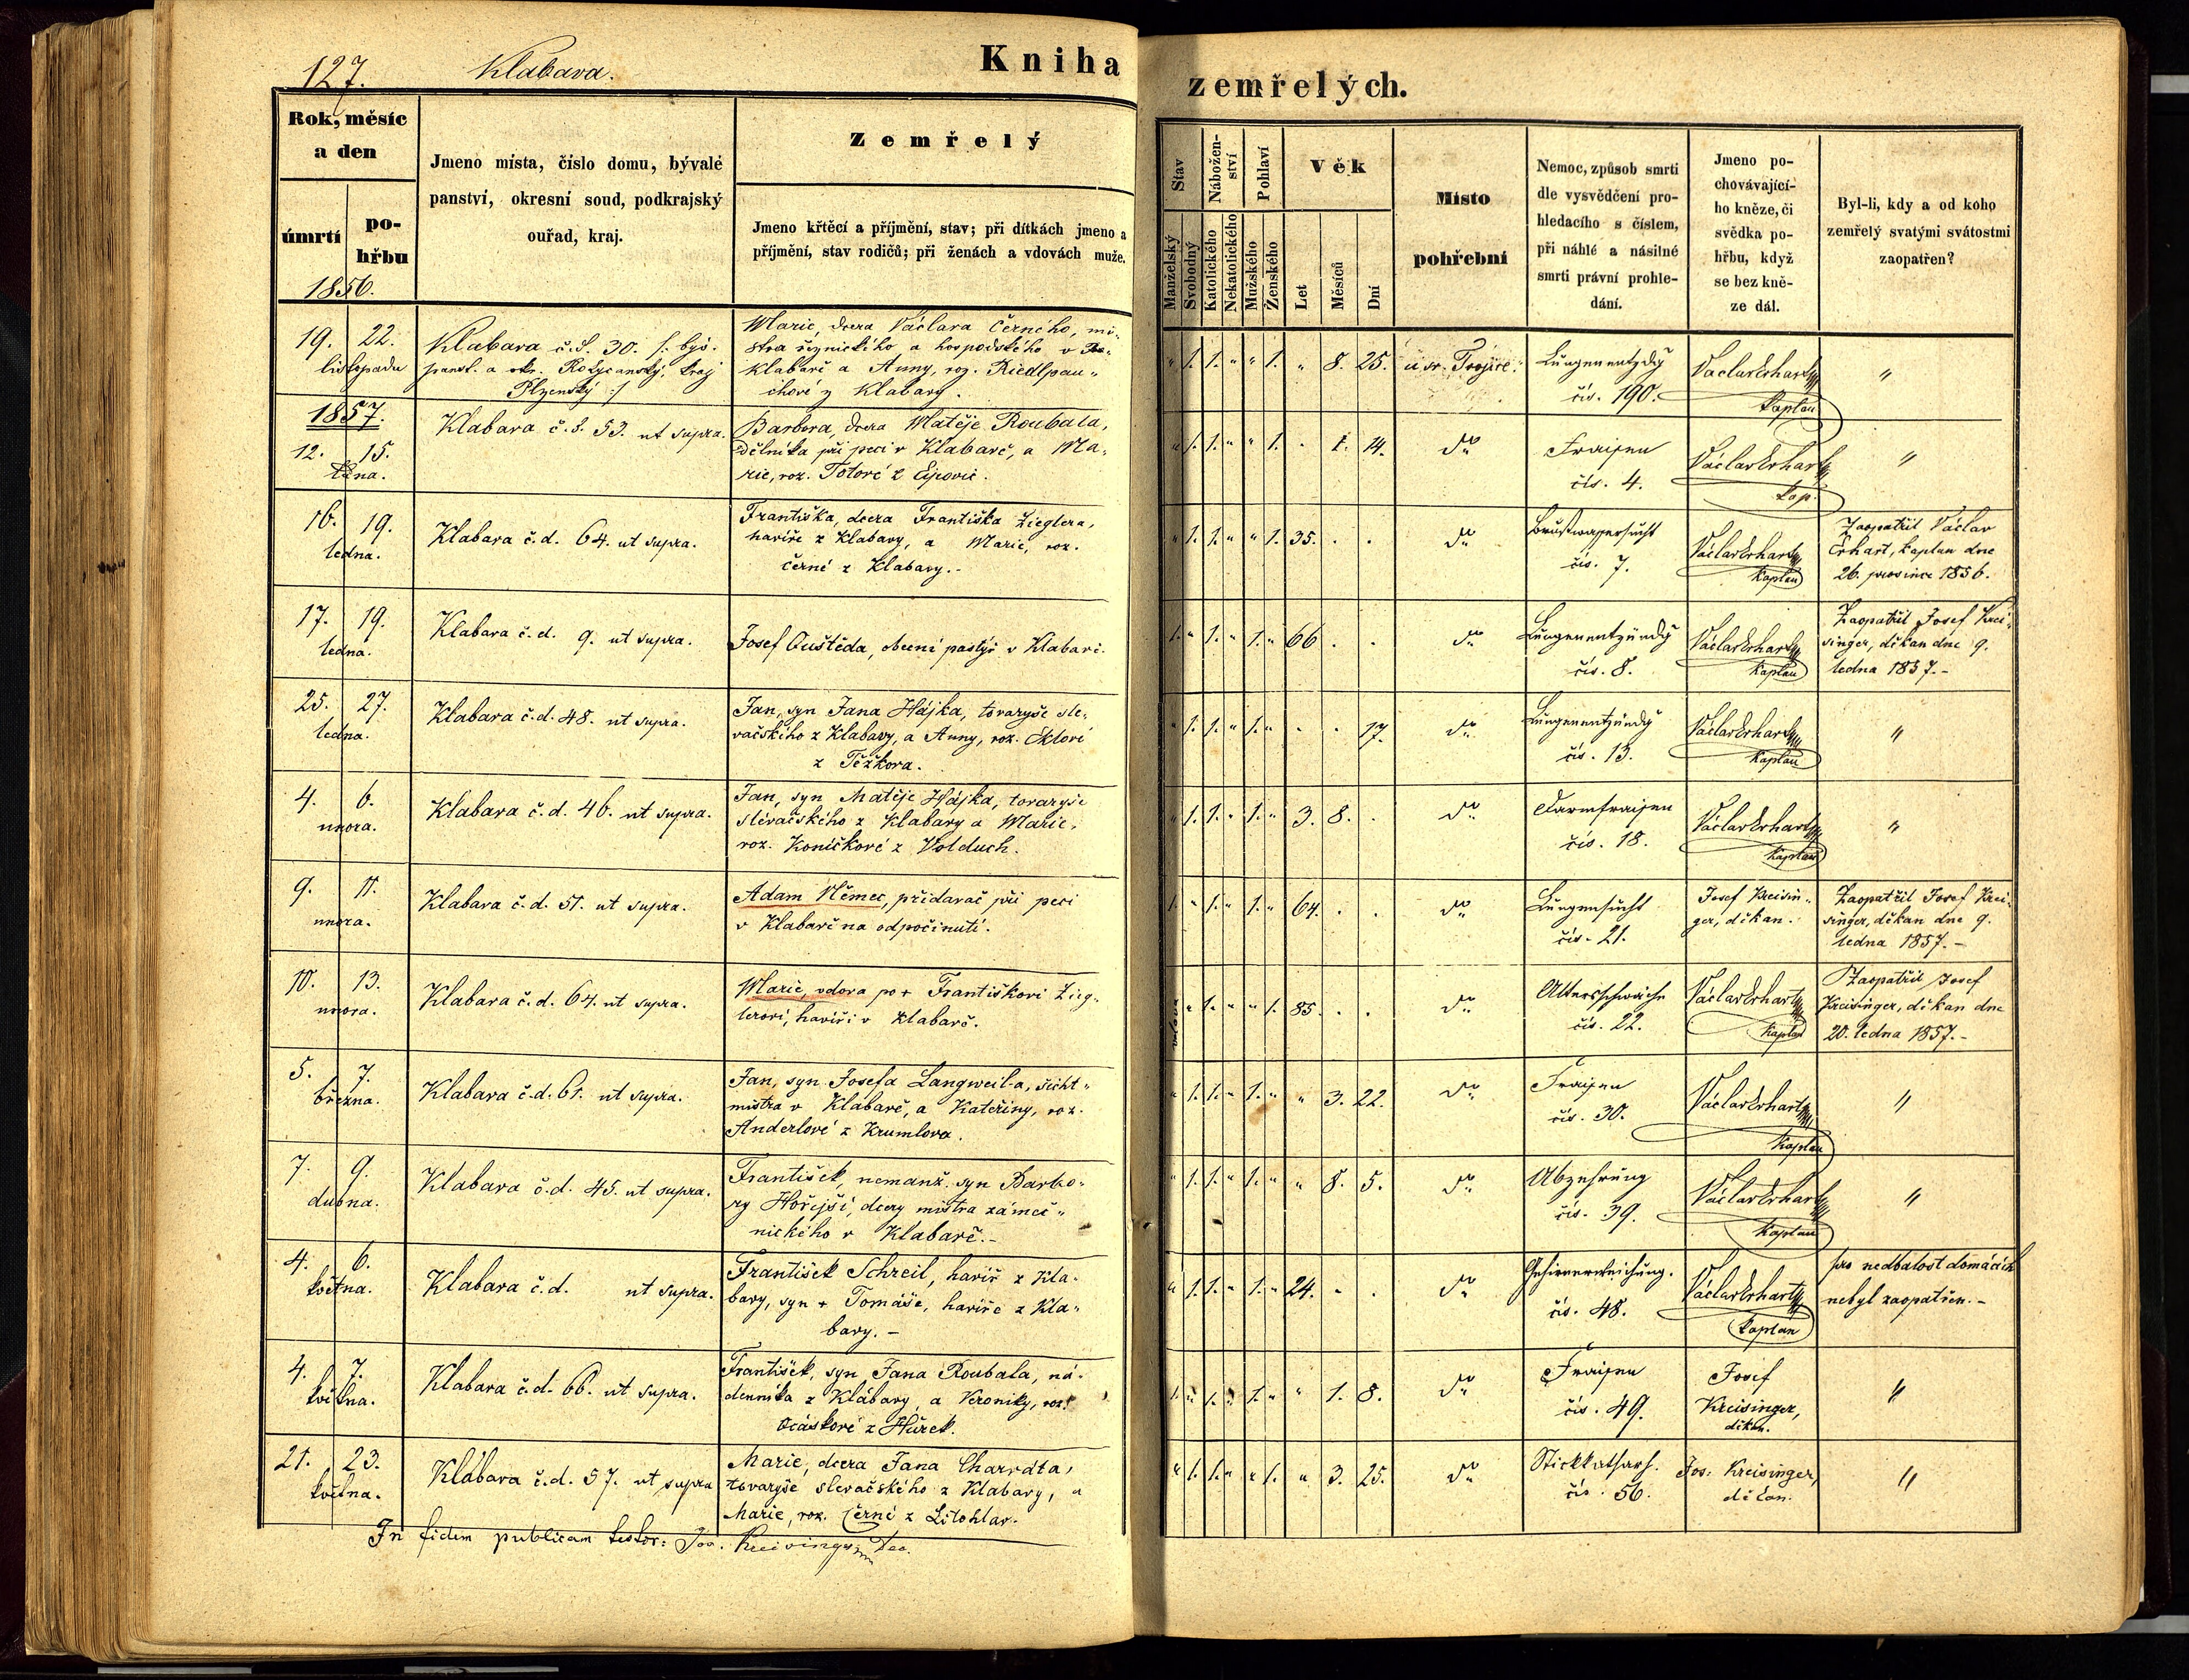 127.
Klabava.
Kniha
zemřelých.
Rok, měsíc
a den
úmrtí
po-
hřbu
1856.
Jmeno místa, číslo domu, bývalé
panství, okresní soud, podkrajský
ouřad, kraj.
Zemřelý
Jmeno křtěcí a příjmění, stav; při dítkách jmeno a
příjmění, stav rodičů; při ženách a vdovách muže.
Stav
Manželský
Svobodný
Nábožen-
ství
Katolického
Nekatolického
Pohlaví
Mužského
Ženského
Věk
Let
Měsíců
Dní
Místo
pohřební
Nemoc, způsob smrti
dle vysvědčení pro-
hledacího s číslem,
při náhlé a násilné
smrti právní prohle-
dání.
Jmeno po-
chovávající-
ho kněze, či
svědka po-
hřbu, když
se bez kně-
ze dál.
Byl-li, kdy a od koho
zemřelý svatými svátostmi
zaopatřen?
19. 22.
listopadu
Klabava č.d. 30. /: býv.
panst. a okr. Rokycanský, kraj
Plzenský :/
Marie, dcera Václava Černého, mi-
stra řeznického a hospodského v
Klabavě a Anny, roz. Riedlpau-
chové z Klabavy.
" 1. 1. " " 1. " 8. 25.
u sv. Trojice.
Lungenentzdg
čís. 190.
Václav Erhart
kaplan
"
1857.
12. 15.
ledna.
Klabava č.d. 53. ut supra.
Barbora, dcera Matěje Roubala,
dělníka při peci v Klabavě, a Ma-
rie, roz. Totové z Ejpovic.
" 1. 1. " " 1. . 1. 14.
dto
Fraisen
čís. 4.
Václav Erhart
kap.
"
16. 19.
ledna.
Klabava č.d. 64. ut supra.
Františka, dcera Františka Zieglera,
havíře z Klabavy, a Marie, roz.
Černé z Klabavy.-
" 1. 1. " " 1. 35. . .
dto
Brustwassersucht
čís. 7.
Václav Erhart
kaplan
Zaopatřil Václav
Erhart, kaplan dne
26. prosince 1856.
17. 19.
ledna.
Klabava č.d. 9. ut supra.
Josef Ouštěda, obecní pastýř v Klabavě.
1. " 1. " 1. " 66 . .
dto
Lungenentzündg
čís. 8.
Václav Erhart
kaplan
Zaopatřil Josef Krei-
singer, děkan dne 9.
ledna 1857.-
25. 27.
ledna.
Klabava č.d. 48. ut supra.
Jan, syn Jana Hájka, tovaryše sle-
vačského z Klabavy, a Anny, roz.
z Těžkova.
" 1. 1. " 1. " . . 17.
dto
Lungenentzündg
čís. 13.
Václav Erhart
kaplan
"
4. 6.
unora.
Klabava č.d. 46. ut supra.
Jan, syn Matěje Hájka, tovaryše
slévačského z Klabavy a Marie,
roz. Koníčkové z Volduch.
" 1. 1. " 1. " 3. 8. .
dto
Darmfraisen
čís. 18.
Václav Erhart
kaplan
"
9. 11.
unora.
Klabava č.d. 51. ut supra.
Adam Němec, přidavač při peci
v Klabavě na odpočinutí.
1. " 1. " 1. " 64. . .
dto
Lungensucht
čís. 21.
Josef Kreisin-
ger, děkan.
Zaopatřil Josef Krei-
singer, děkan dne 9.
ledna 1857.-
10. 13.
unora.
Klabava č.d. 64. ut supra.
Marie, vdova po + Františkovi Zieg-
lerovi, havíři v Klabavě.
vdova " 1. " " 1. 85. . .
dto
Altersschwäche
čís. 22.
Václav Erhart
kaplan
Zaopatřil Josef
Kreisinger, děkan dne
20. ledna 1857.-
5. 7.
března.
Klabava č.d. 61. ut supra.
Jan, syn Josefa Langweil-a, šicht-
mistra v Klabavě, a Kateřiny, roz.
Anderlové z Krumlova.
" 1. 1. " 1. " " 3. 22.
dto
Fraisen
čís. 30.
Václav Erhart
kaplan
"
7. 9.
dubna.
Klabava č.d. 45. ut supra.
František, nemanž. syn Barbo-
ry Hořejší, dcery mistra zámeč-
nického v Klabavě.-
" 1. 1. " 1. " " 8. 5.
dto
Abzehrung
čís. 39.
Václav Erhart
kaplan
"
4. 6.
května.
Klabava č.d. ut supra.
František Schreil, havíř z Kla-
bavy, syn + Tomáše, havíře z Kla-
bavy.-
" 1. 1. " 1. " 24. " .
dto
Gehirnerweichung.
čís. 48.
Václav Erhart
kaplan
pro nedbalost domácích
nebyl zaopatřen.-
4. 7.
května.
Klabava č.d. 66. ut supra.
František, syn Jana Roubala, ná-
denníka z Klabavy, a Veroniky, roz.
Ocáskové z Hůrek.
1. " 1. " 1. " " 1. 8.
dto
Fraisen
čís. 49.
Josef
Kreisinger,
děkan.
"
21. 23.
května.
Klabava č.d. 57. ut supra
Marie, dcera Jana Charváta,
tovaryše slevačského z Klabavy, a
Marie, roz. Černé z Litohlav.
" 1. 1. " " 1. " 3. 25.
dto
Stickkatharh.
čís. 56.
Jos. Kreisinger,
děkan.
"
In fidem publicam testor: Jos. Kreisinger Dec.